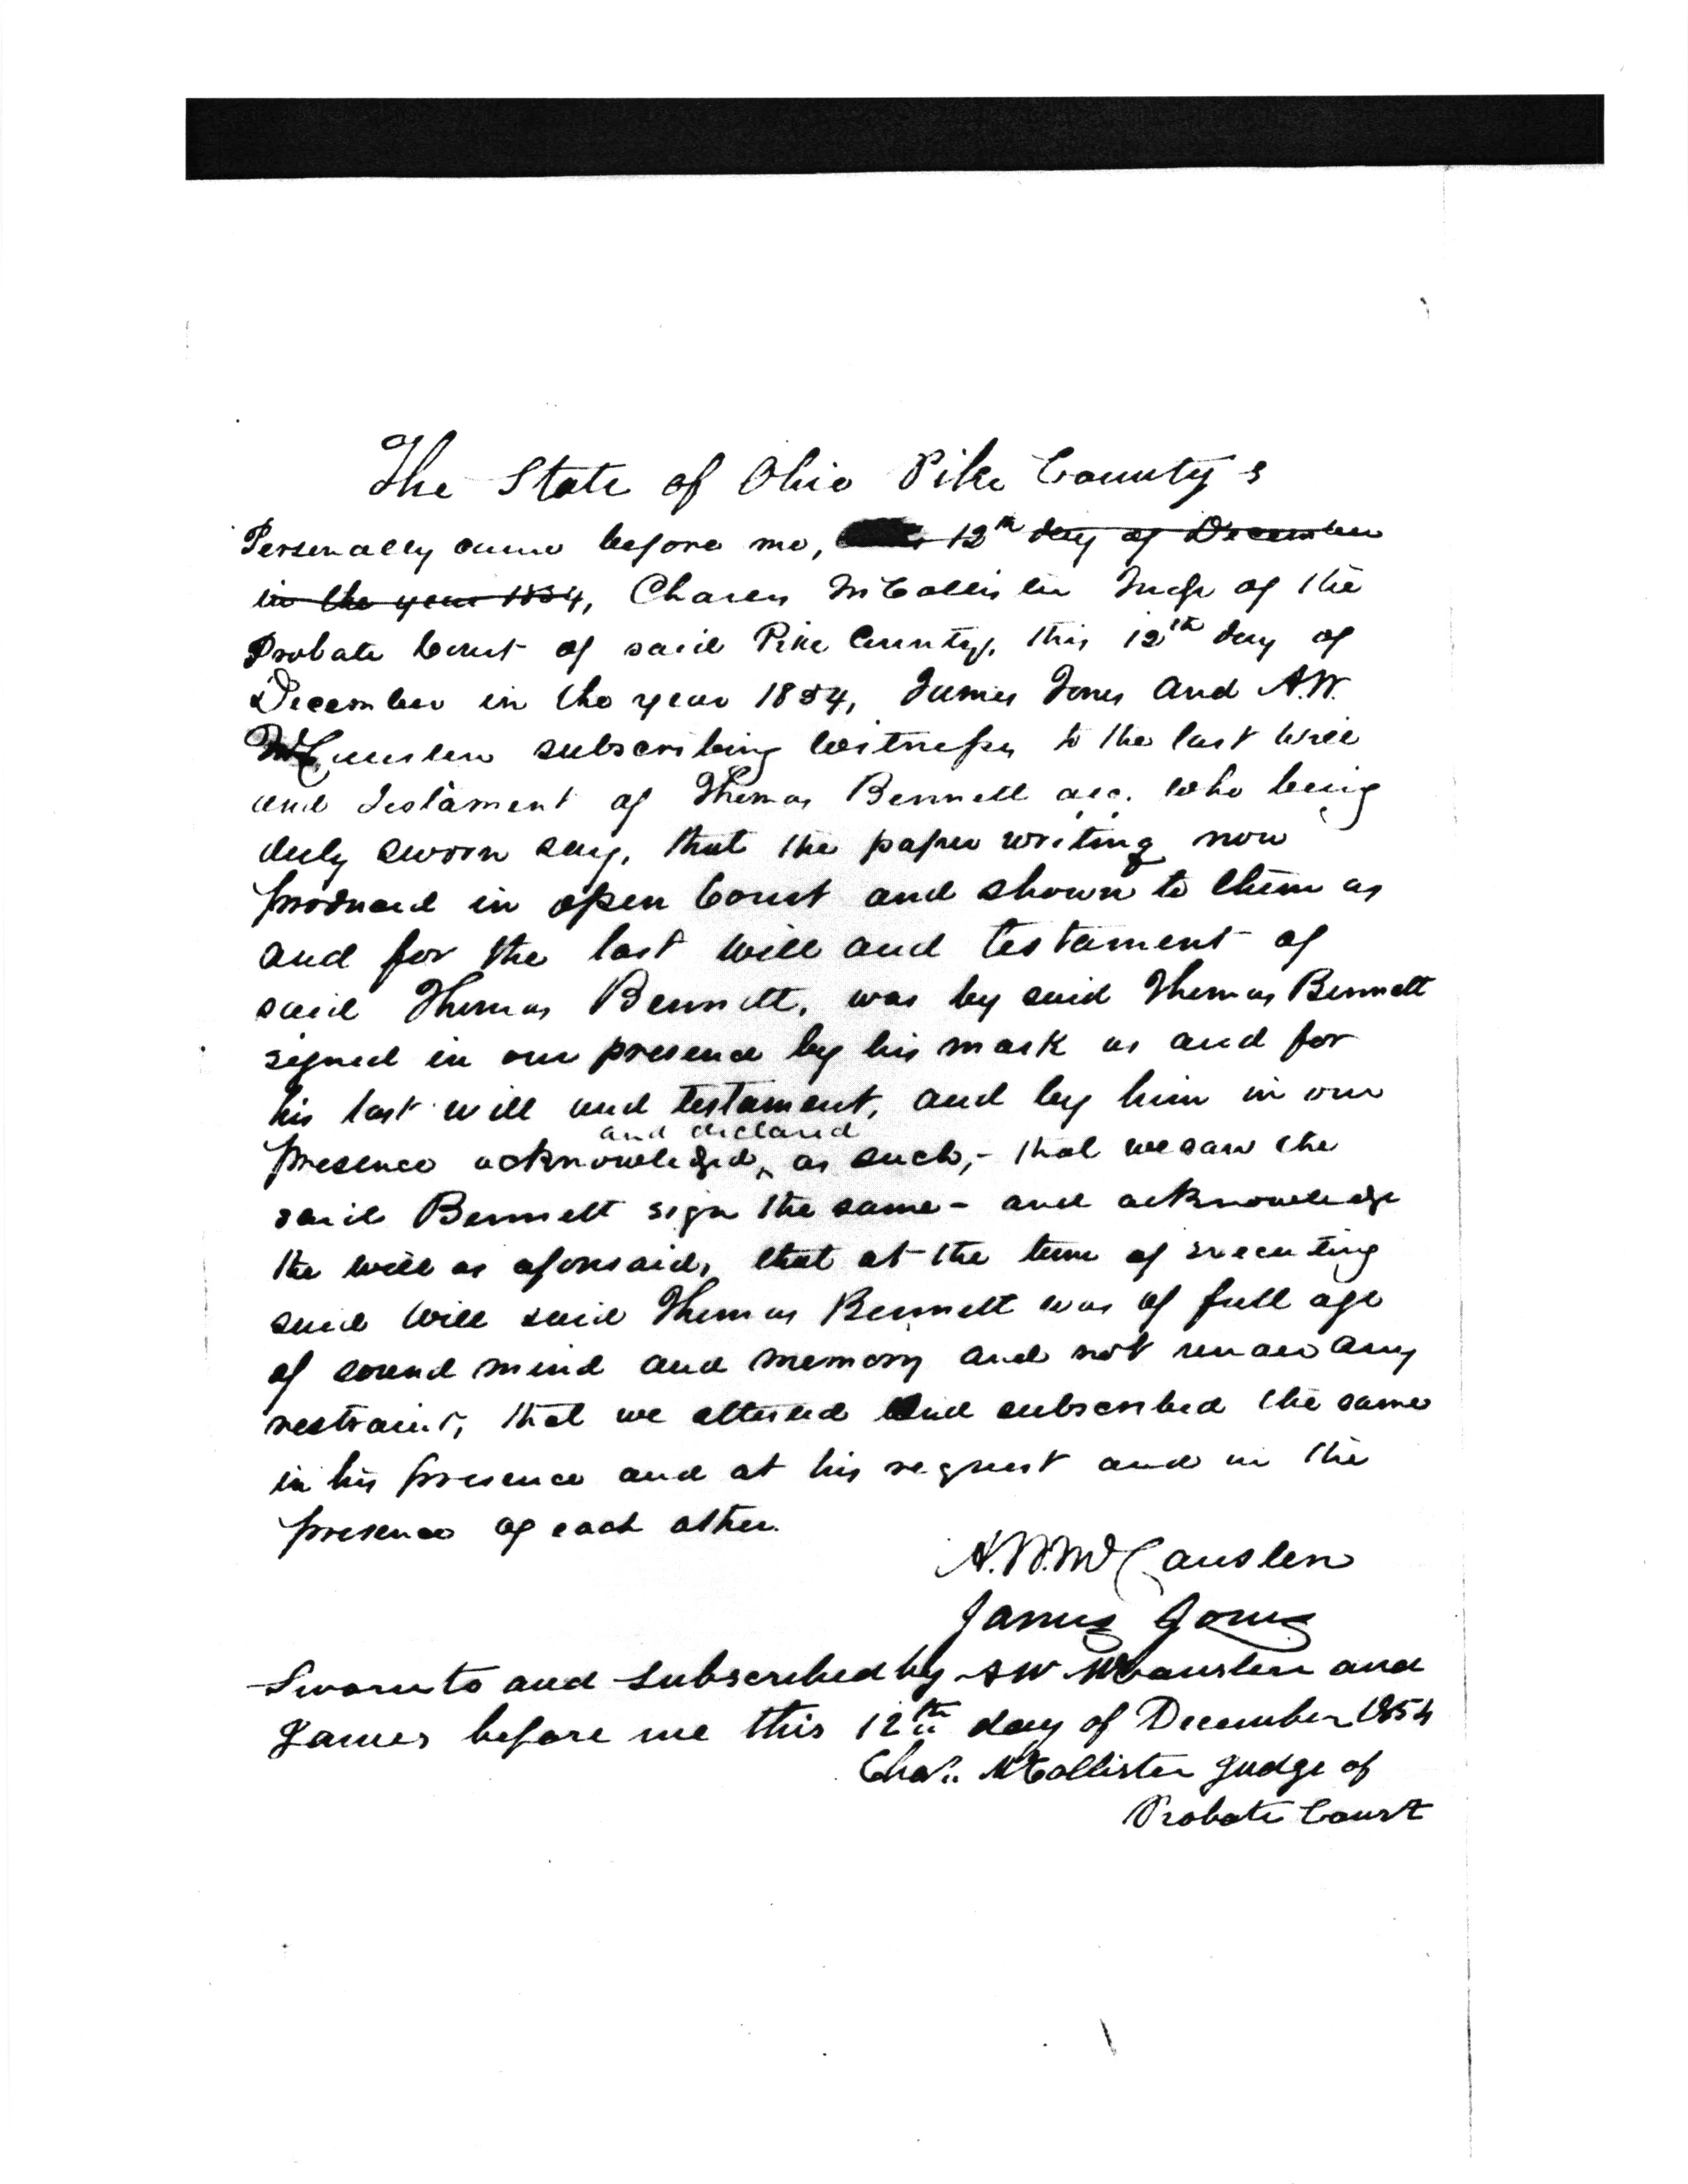 The State of Ohio Pike County s
Personally came before me, 12th day of December
in the year 1854, Charles McCollister Judge of the
Probate Court of said Pike County, this 12th day of
December in the year 1854, James Jones and A.W.
McCauslen subscribing witnesses to the last will
and testament of Thomas Bennett dec. who being
duly sworn say, that the paper writing now
produced in open Court and shown to them as
and for the last will and testament of
said Thomas Bennett, was by said Thomas Bennett
signed in our presence by his mark as and for
his last will and testament, and by him in our
and declared
presence acknowledged, as such,- that we saw the
said Bennett sign the same - and acknowledge
the will as aforesaid, that at the time of executing
said will said Thomas Bennett was of full age
of sound mind and memory and not under any
restraint, that we attested and subscribed the same
in his presence and at his request and in the
presence of each other.
A.W. McCauslen
James Jones
Sworn to and subscribed by A W McCauslen and
James before me this 12th day of December 1854
Chas. McCollister Judge of
Probate Court